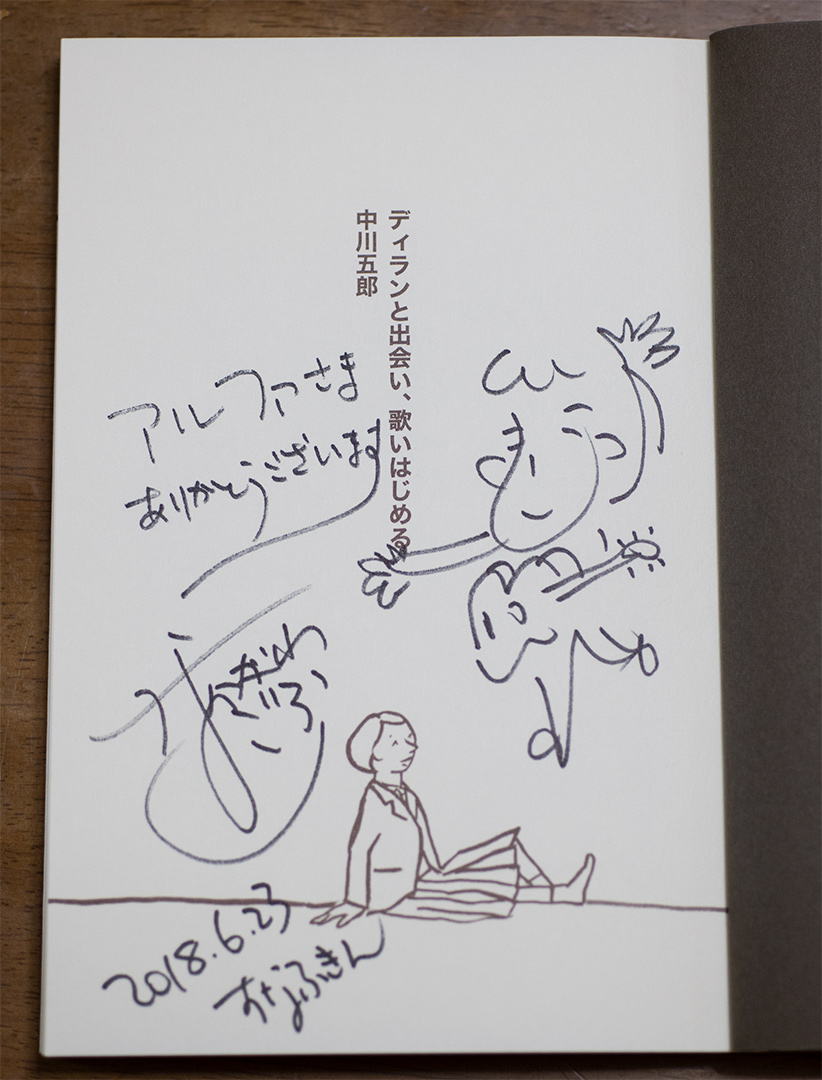 ディランと出会い、歌いはじめる
中川五郎
アルファさま
ありがとうございます
なかがわ
ごろう
2018.6.23
すなふきん